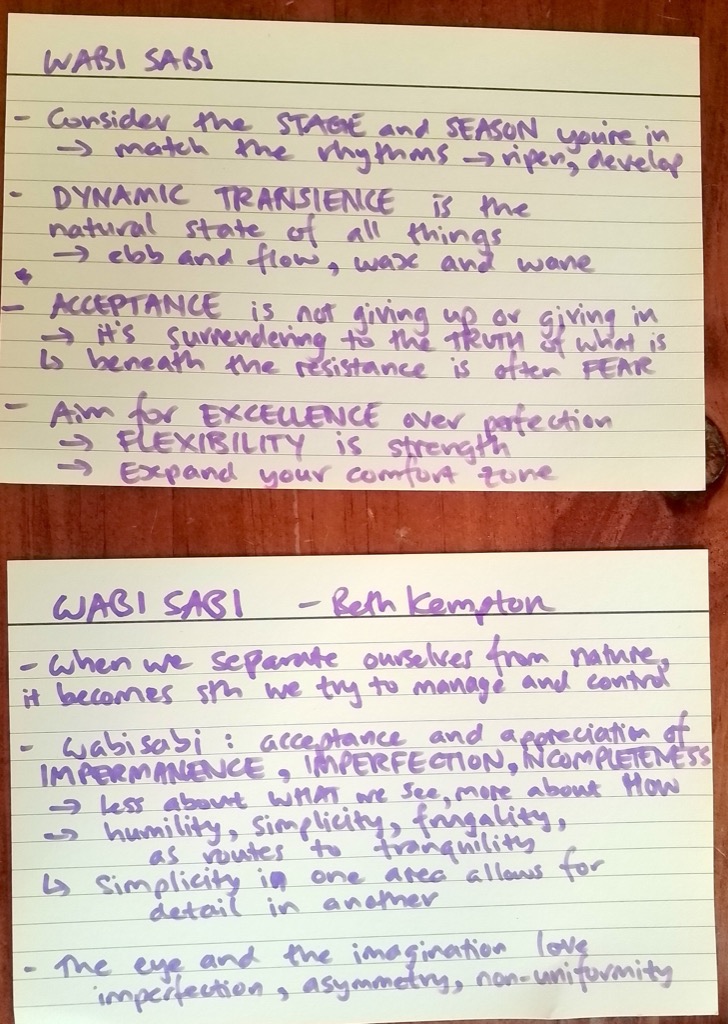 WABI SABI
- Consider the STAGE and SEASON you're in
→ match the rhythms → ripen, develop
- DYNAMIC TRANSIENCE is the
natural state of all things
→ ebb and flow, wax and wane
- ACCEPTANCE is not giving up or giving in
→ it's surrendering to the TRUTH of what is
↳ beneath the resistance is often FEAR
- Aim for EXCELLENCE over perfection
→ FLEXIBILITY is strength
→ Expand your comfort zone
WABI SABI - Beth Kempton
- When we separate ourselves from nature,
it becomes sth we try to manage and control
- Wabi sabi : acceptance and appreciation of
IMPERMANENCE, IMPERFECTION, INCOMPLETENESS
→ less about WHAT we see, more about HOW
→ humility, simplicity, frugality,
as routes to tranquility
↳ Simplicity in one area allows for
detail in another
- The eye and the imagination love
imperfection, asymmetry, non-uniformity